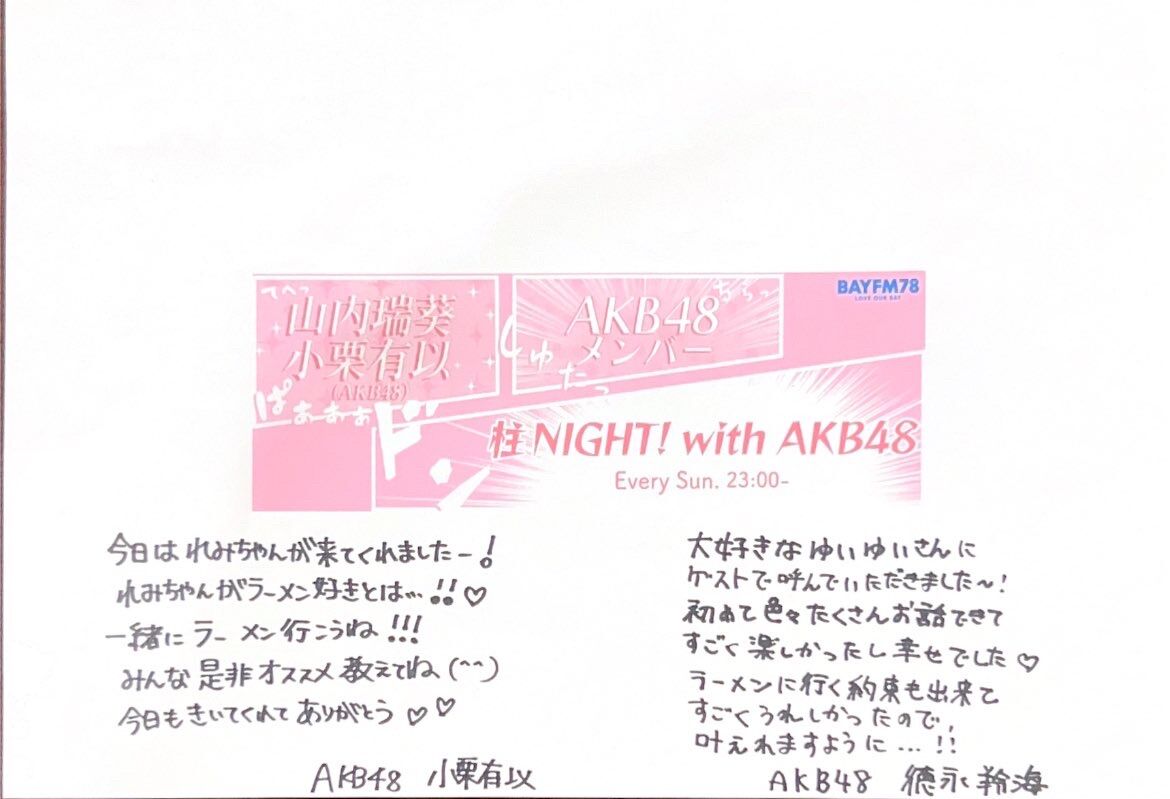 てへっ
山内瑞葵
小栗有以
(AKB48)
ぱぁぁぁぁ
AKB48
メンバー
しゅたっ
BAYFM78
LOVE OUR BAY
柱NIGHT! with AKB48
Every Sun. 23:00-
今日はれみちゃんが来てくれましたー!
れみちゃんがラーメン好きとは…!!♡
一緒にラーメン行こうね!!!
みんな是非オススメ教えてね(^^)
今日もきいてくれてありがとう♡♡
AKB48 小栗有以
大好きなゆいゆいさんに
ゲストで呼んでいただきました〜!
初めて色々たくさんお話できて
すごく楽しかったし幸せでした♡
ラーメンに行く約束も出来て
すごくうれしかったので、
叶えれますように…!!
AKB48 徳永羚海